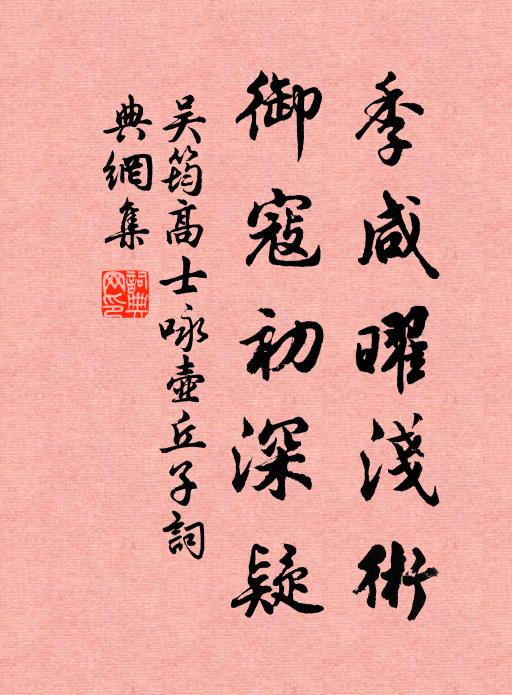 季咸曜淺術
御寇初深疑
吳筠高士咏壺丘子詞
典網集
詞典網印